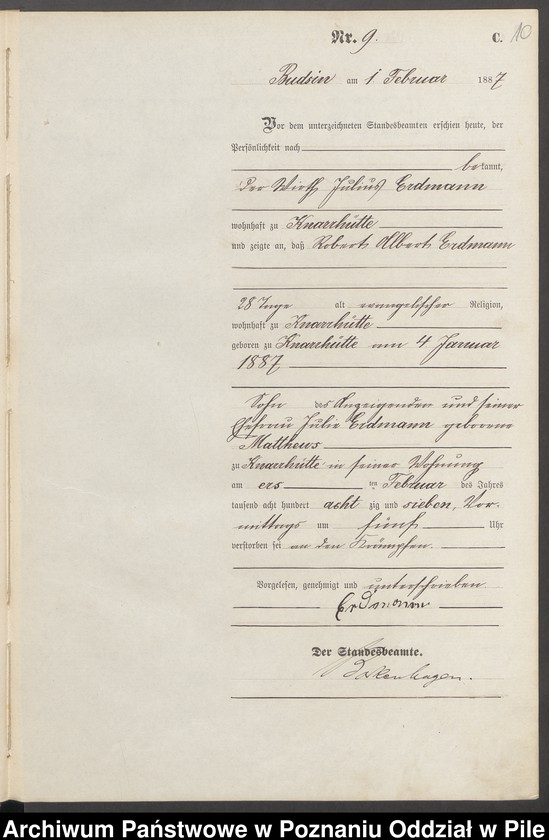 Nr. 9. C. 10
Budsin am 1 Februar 1887
Vor dem unterzeichneten Standesbeamten erschien heute, der
Persönlichkeit nach
bekannt,
der Wirth Julius Erdmann
wohnhaft zu Knarrhütte
und zeigte an, daß Robert Albert Erdmann
28 Tage alt evangelischer Religion,
wohnhaft zu Knarrhütte
geboren zu Knarrhütte am 4 Januar
1887
Sohn des Anzeigenden und seiner
Ehefrau Julie Erdmann geborene
Mattheus
zu Knarrhütte in seiner Wohnung
am ers ten Februar des Jahres
tausend acht hundert acht zig und sieben, Vor-
mittags um fünf Uhr
verstorben sei an den Krämpfen.
Vorgelesen, genehmigt und unterschrieben
Erdmann
Der Standesbeamte.
Archiwum Państwowe w Poznaniu Oddział w Pile